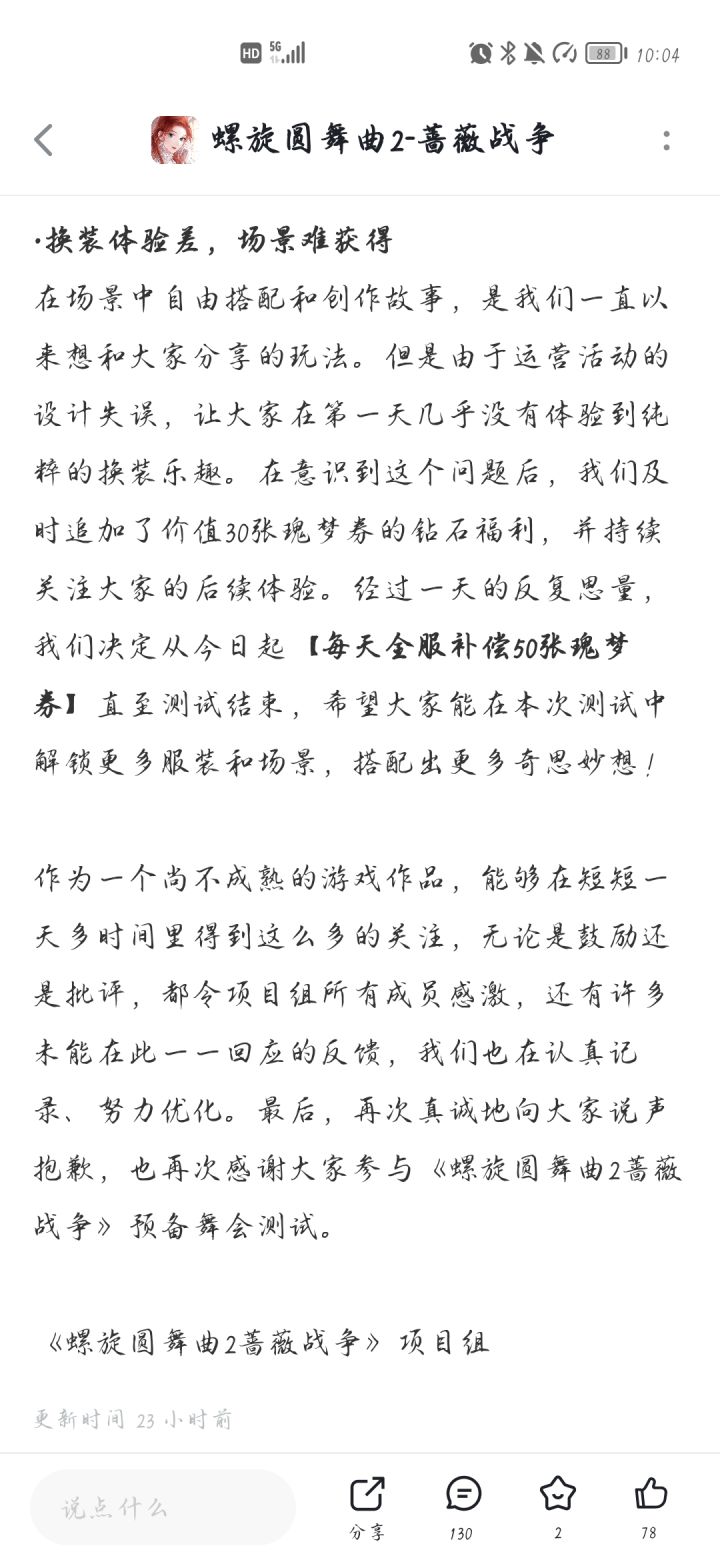 HD 5G 88 10:04
螺旋圆舞曲2-蔷薇战争
·换装体验差，场景难获得
在场景中自由搭配和创作故事，是我们一直以
来想和大家分享的玩法。但是由于运营活动的
设计失误，让大家在第一天几乎没有体验到纯
粹的换装乐趣。在意识到这个问题后，我们及
时追加了价值30张瑰梦券的钻石福利，并持续
关注大家的后续体验。经过一天的反复思量，
我们决定从今日起【每天全服补偿50张瑰梦
券】直至测试结束，希望大家能在本次测试中
解锁更多服装和场景，搭配出更多奇思妙想！
作为一个尚不成熟的游戏作品，能够在短短一
天多时间里得到这么多的关注，无论是鼓励还
是批评，都令项目组所有成员感激，还有许多
未能在此一一回应的反馈，我们也在认真记
录、努力优化。最后，再次真诚地向大家说声
抱歉，也再次感谢大家参与《螺旋圆舞曲2蔷薇
战争》预备舞会测试。
《螺旋圆舞曲2蔷薇战争》项目组
更新时间 23 小时前
说点什么
分享 130 2 78